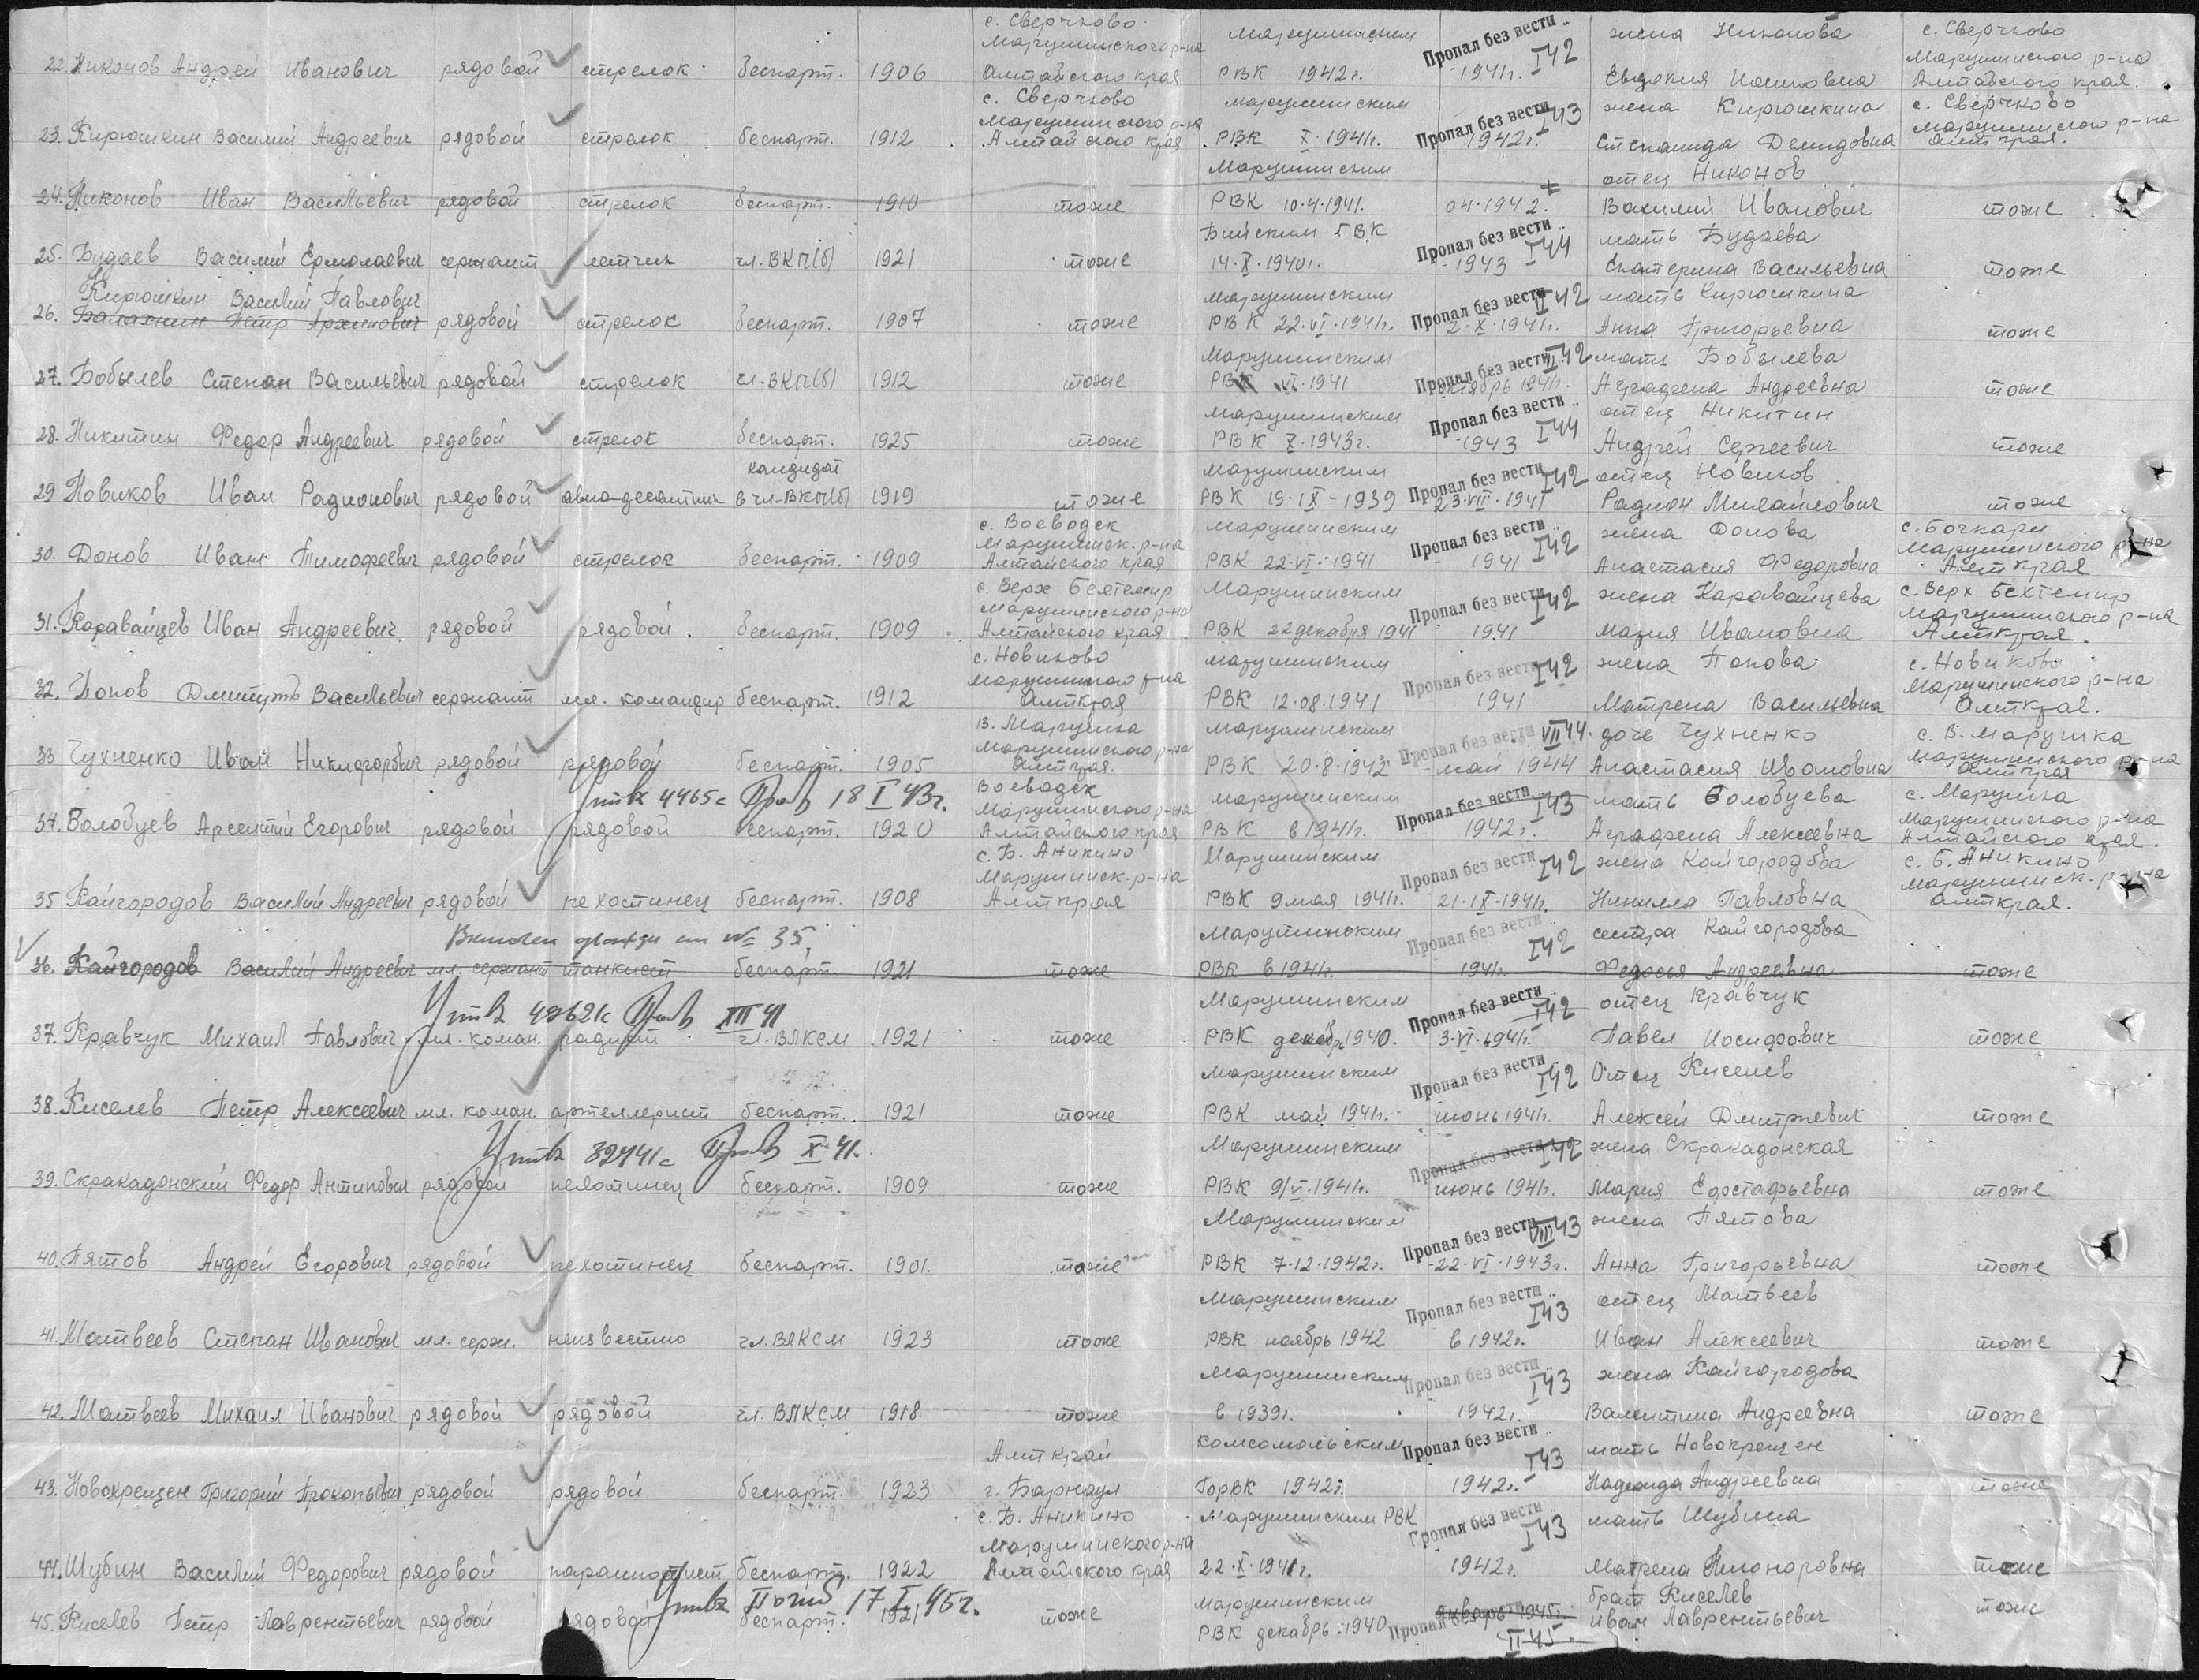 с. Сверчково Марушинским Пропал без вести жена Никонова с. Сверчково
Марушинского р-на I 42 Марушинского р-на
22. Никонов Андрей Иванович рядовой стрелок беспарт. 1906 Алтайского края РВК 1942г. 1941г. Евдокия Алтайского края.
с. Сверчково Марушинским Пропал без вести I 43 жена Кирюшкина с. Сверчково
Марушинского р-на Марушинского р-на
23. Кирюшкин Василий Андреевич рядовой стрелок беспарт. 1912 Алтайского края РВК X.1941г. 1942г. Степанида Демидовна Алткрая.
Марушинским отец Никонов
24. Никонов Иван Васильевич рядовой стрелок беспарт. 1910 тоже РВК 10.4.1941. 04.1942. Василий Иванович тоже
Бийским ГВК Пропал без вести I 44 мать Будаева
25. Будаев Василий Ермолаевич сержант летчик чл. ВКП(б) 1921 тоже 14.X.1940г. 1943 Екатерина Васильевна тоже
Кирюшкин Василий Павлович Марушинским Пропал без вести 42 мать Кирюшкина
26. Балахнин Петр Архипович рядовой стрелок беспарт. 1907 тоже РВК 22.VI.1941г. 2.X.1941г. Анна Григорьевна тоже
Марушинским Пропал без вести 42 мать Бобылева
27. Бобылев Степан Васильевич рядовой стрелок чл. ВКП(б) 1912 тоже РВК VI.1941 октябрь 1941г. Аграфена Андреевна тоже
Марушинским Пропал без вести I 44 отец Никитин
28. Никитин Федор Андреевич рядовой стрелок беспарт. 1925 тоже РВК X.1943г. 1943 Андрей Сергеевич тоже
кандидат Марушинским Пропал без вести I 42 отец Новиков
29 Новиков Иван Радионович рядовой авиа-десантник в чл. ВКП(б) 1919 тоже РВК 19.IX-1939 23.VII.1941 Радион Михайлович тоже
с. Воеводск Марушинским Пропал без вести I 42 жена Донова с. Бочкари
Марушинск. р-на Марушинского р-на
30. Донов Иван Тимофеевич рядовой стрелок беспарт. 1909 Алтайского края РВК 22.VI.1941 1941 Анастасия Федоровна Алткрая
с. Верх Бехтемир Марушинским Пропал без вести I 42 жена Каравайцева с. Верх Бехтемир
Марушинского р-на Марушинского р-на
31. Каравайцев Иван Андреевич рядовой рядовой беспарт. 1909 Алтайского края РВК 22 декабря 1941 1941 Мария Ивановна Алткрая.
с. Новиково Марушинским Пропал без вести I 42 жена Попова с. Новиково
Марушинского р-на Марушинского р-на
32. Попов Дмитрий Васильевич сержант мл. командир беспарт. 1912 Алткрая РВК 12.08.1941 1941 Матрена Васильевна Алткрая.
В. Марушка Марушинским Пропал без вести VII 44. дочь Чухненко с. В. Марушка
Марушинского р-на Марушинского р-на
33 Чухненко Иван Никифорович рядовой рядовой беспарт. 1905 Алткрая. РВК 20.8.1942 май 1944 Анастасия Ивановна Алткрая
учтён 4465с Проп 18 I 43г. Воеводск Марушинским Пропал без вести I 43 мать Болобуева с. Марушка
Марушинского р-на Марушинского р-на
34. Болобуев Арсентий Егорович рядовой рядовой беспарт. 1920 Алтайского края РВК в 1941г. 1942г. Аграфена Алексеевна Алтайского края.
с. Б. Аникино Марушинским Пропал без вести I 42 жена Кайгородова с. Б. Аникино
Марушинск. р-на Марушинск. р-на
35 Кайгородов Василий Андреевич рядовой пехотинец беспарт. 1908 Алткрая РВК 9 мая 1941г. 21.IX.1941г. Павловна алткрая.
Включен дважды см № 35. Марушинским Пропал без вести I 42 сестра Кайгородова
36. Кайгородов Василий Андреевич мл. сержант танкист беспарт. 1921 тоже РВК в 1941г. 1941г. Федосья Андреевна тоже
учтён 49621с Проп XII 41 Марушинским Пропал без вести I 42 отец Кравчук
37. Кравчук Михаил Павлович мл. коман. радист чл. ВЛКСМ 1921 тоже РВК декабр 1940. 3.VI.1941г. Павел Иосифович тоже
Марушинским Пропал без вести I 42 Отец Киселев
38. Киселев Петр Алексеевич мл. коман. артеллерист беспарт. 1921 тоже РВК май 1941г. июнь 1941г. Алексей Дмитриевич тоже
учтён 82441с Проп X 41. Марушинским Пропал без вести I 42 жена Скракадонская
39. Скракадонский Федор Антипович рядовой пехотинец беспарт. 1909 тоже РВК 9/V.1941г. июнь 1941г. Мария Ефстафьевна тоже
Марушинским Пропал без вести VIII 43 жена Пятова
40. Пятов Андрей Егорович рядовой пехотинец беспарт. 1901. тоже РВК 7.12.1942г. 22.VI.1943г. Анна Григорьевна тоже
Марушинским Пропал без вести I 43 отец Матвеев
41. Матвеев Степан Иванович мл. серж. неизвестно чл. ВЛКСМ 1923 тоже РВК ноябрь 1942 в 1942г. Иван Алексеевич тоже
Марушинским Пропал без вести I 43 жена Кайгородова
42. Матвеев Михаил Иванович рядовой рядовой чл. ВЛКСМ 1918. тоже в 1939г. 1942г. Валентина Андреевна тоже
Алт край комсомольским Пропал без вести I 43 мать Новокрещен
43. Новокрещен Григорий Прокопьевич рядовой рядовой беспарт. 1923 г. Барнаул ГорВК 1942г. 1942г. Надежда Андреевна тоже
с. Б. Аникино Марушинским РВК Пропал без вести I 43 мать Шубина
Марушинского р-на
44. Шубин Василий Федорович рядовой беспарт. 1922 Алтайского края 22.X.1941г. 1942г. Матрена тоже
учтён Погиб 17 I 45г. Марушинским январь 1945г. брат Киселев
45. Киселев Петр Лаврентьевич рядовой рядовой беспарт. 1921 тоже РВК декабрь 1940 Пропал без вести Иван Лаврентьевич тоже
II 45.